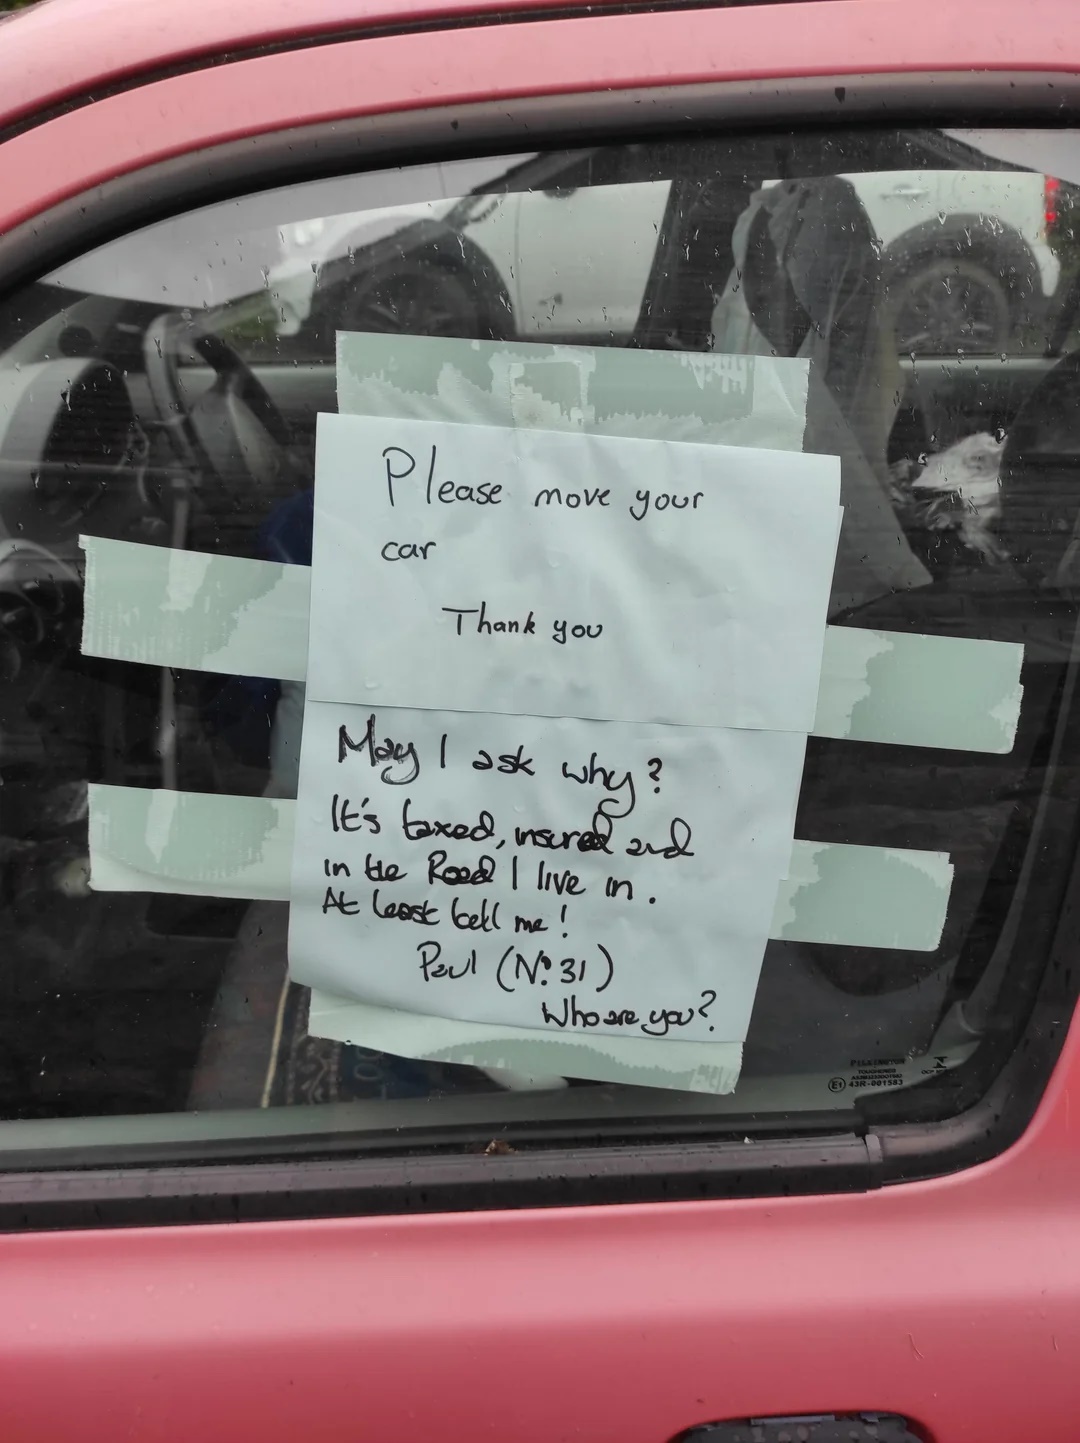 Please move your
car
Thank you
May I ask why?
It's taxed, insured and
in the Road I live in.
At least tell me!
Paul (Nº 31)
Who are you?
PILKINGTON
TOUGHENED
E1 43R-001583